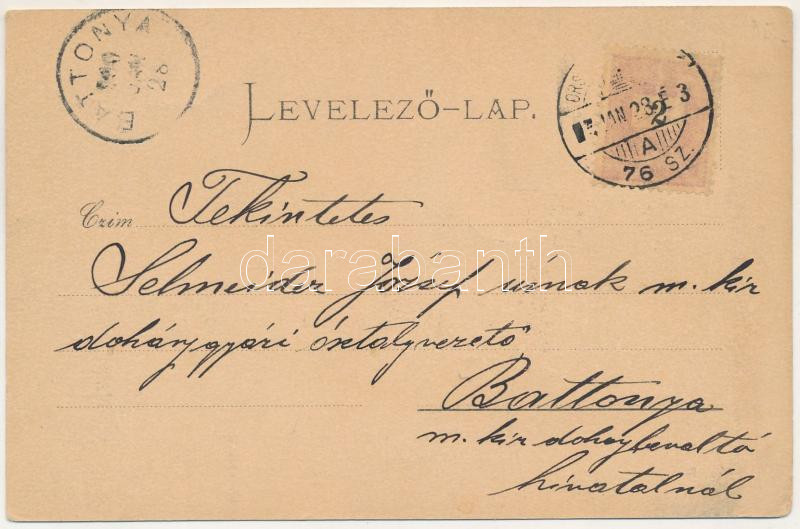 BATTONYA
900
JAN
28
LEVELEZŐ-LAP.
JAN 28
A
76 SZ.
Czim Tekintetes
Selmeider József úrnak m. kir
dohánygyári osztályvezető
Battonya
m. kir dohanybevaltó
hivatalnál
darabanth